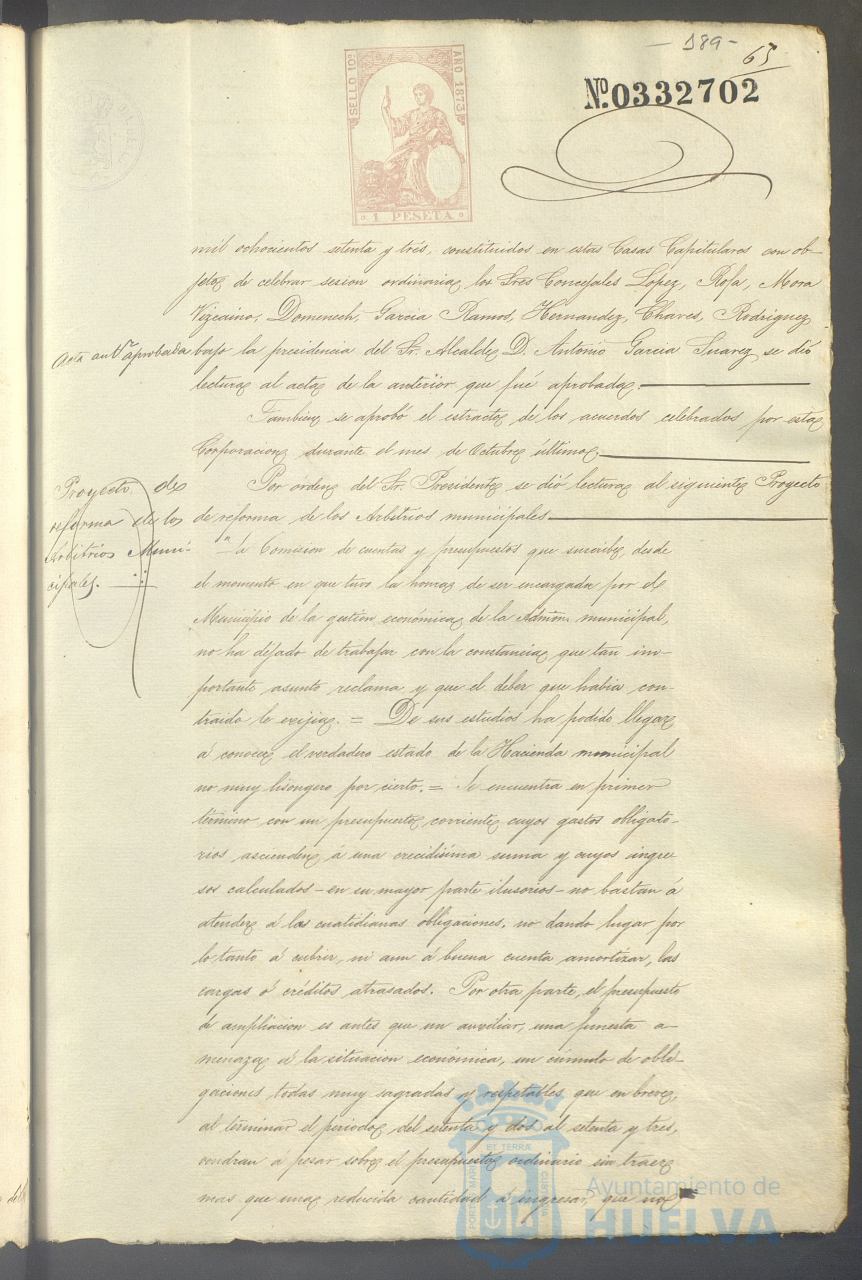 - 189 -
65
SELLO 10º
AÑO 1873
Nº 0332702
1 PESETA
mil ochocientos setenta y tres, constituidos en estas Casas Capitulares con ob-
jeto de celebrar sesion ordinaria los Sres Concejales Lopez, Rofa, Mora
Vizcaino, Domenech, Garcia Ramos, Hernandez, Chaves, Rodriguez
Acta antr aprobada
bajo la presidencia del Sr. Alcalde D. Antonio Garcia Suarez se dió
lectura al acta de la anterior que fué aprobada.
Tambien se aprobó el estracto de los acuerdos celebrados por esta
Corporacion durante el mes de Octubre último
Proyecto de
reforma de los
Arbitrios Muni-
cipales.
Por orden del Sr. Presidente se dió lectura al siguiente Proyecto
de reforma de los Arbitrios municipales
"La Comision de cuentas y presupuestos que suscribe, desde
el momento en que tuvo la honra de ser encargada por el
Municipio de la gestion económica de la Admon. municipal,
no ha dejado de trabajar con la constancia que tan im-
portante asunto reclama y que el deber que habia con-
traido le exijia. = De sus estudios ha podido llegar
á conocer el verdadero estado de la Hacienda municipal
no muy lisongero por cierto. = Se encuentra en primer
término con un presupuesto corriente cuyos gastos obligato-
rios ascienden á una crecidísima suma y cuyos ingre
sos calculados - en su mayor parte ilusorios - no bastan á
atender á las cuotidianas obligaciones, no dando lugar por
lo tanto á cubrir, ni aun á buena cuenta amortizar, las
cargas ó créditos atrasados. Por otra parte, el presupuesto
de ampliacion es antes que un auxiliar, una funesta a-
menaza á la situacion económica, un cúmulo de obli-
gaciones todas muy sagradas y respetables que en breve,
al terminar el periodo del setenta y dos al setenta y tres,
vendran á pesar sobre el presupuesto ordinario sin traer
mas que una reducida cantidad á ingresar, que no
Ayuntamiento de
HUELVA